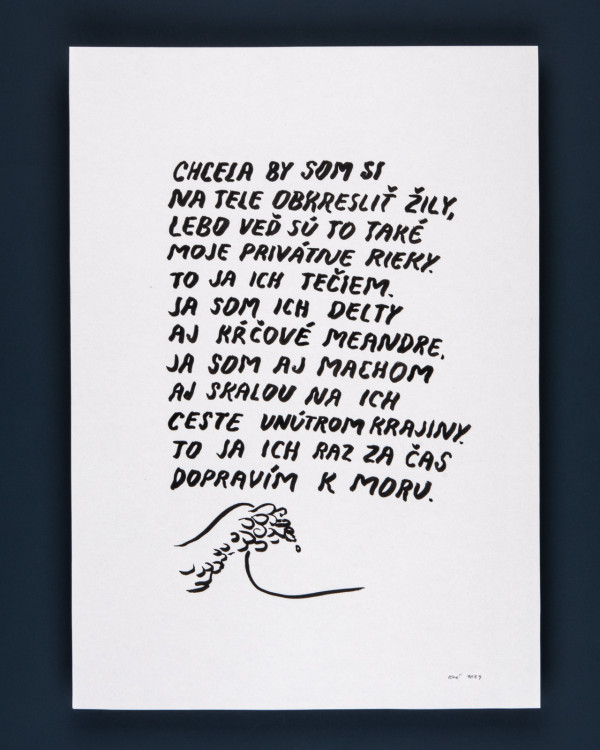 CHCELA BY SOM SI
NA TELE OBKRESLIŤ ŽILY,
LEBO VEĎ SÚ TO TAKÉ
MOJE PRIVÁTNE RIEKY.
TO JA ICH TEČIEM.
JA SOM ICH DELTY
AJ KŔČOVÉ MEANDRE,
JA SOM AJ MACHOM
AJ SKALOU NA ICH
CESTE VNÚTROM KRAJINY.
TO JA ICH RAZ ZA ČAS
DOPRAVÍM K MORU.